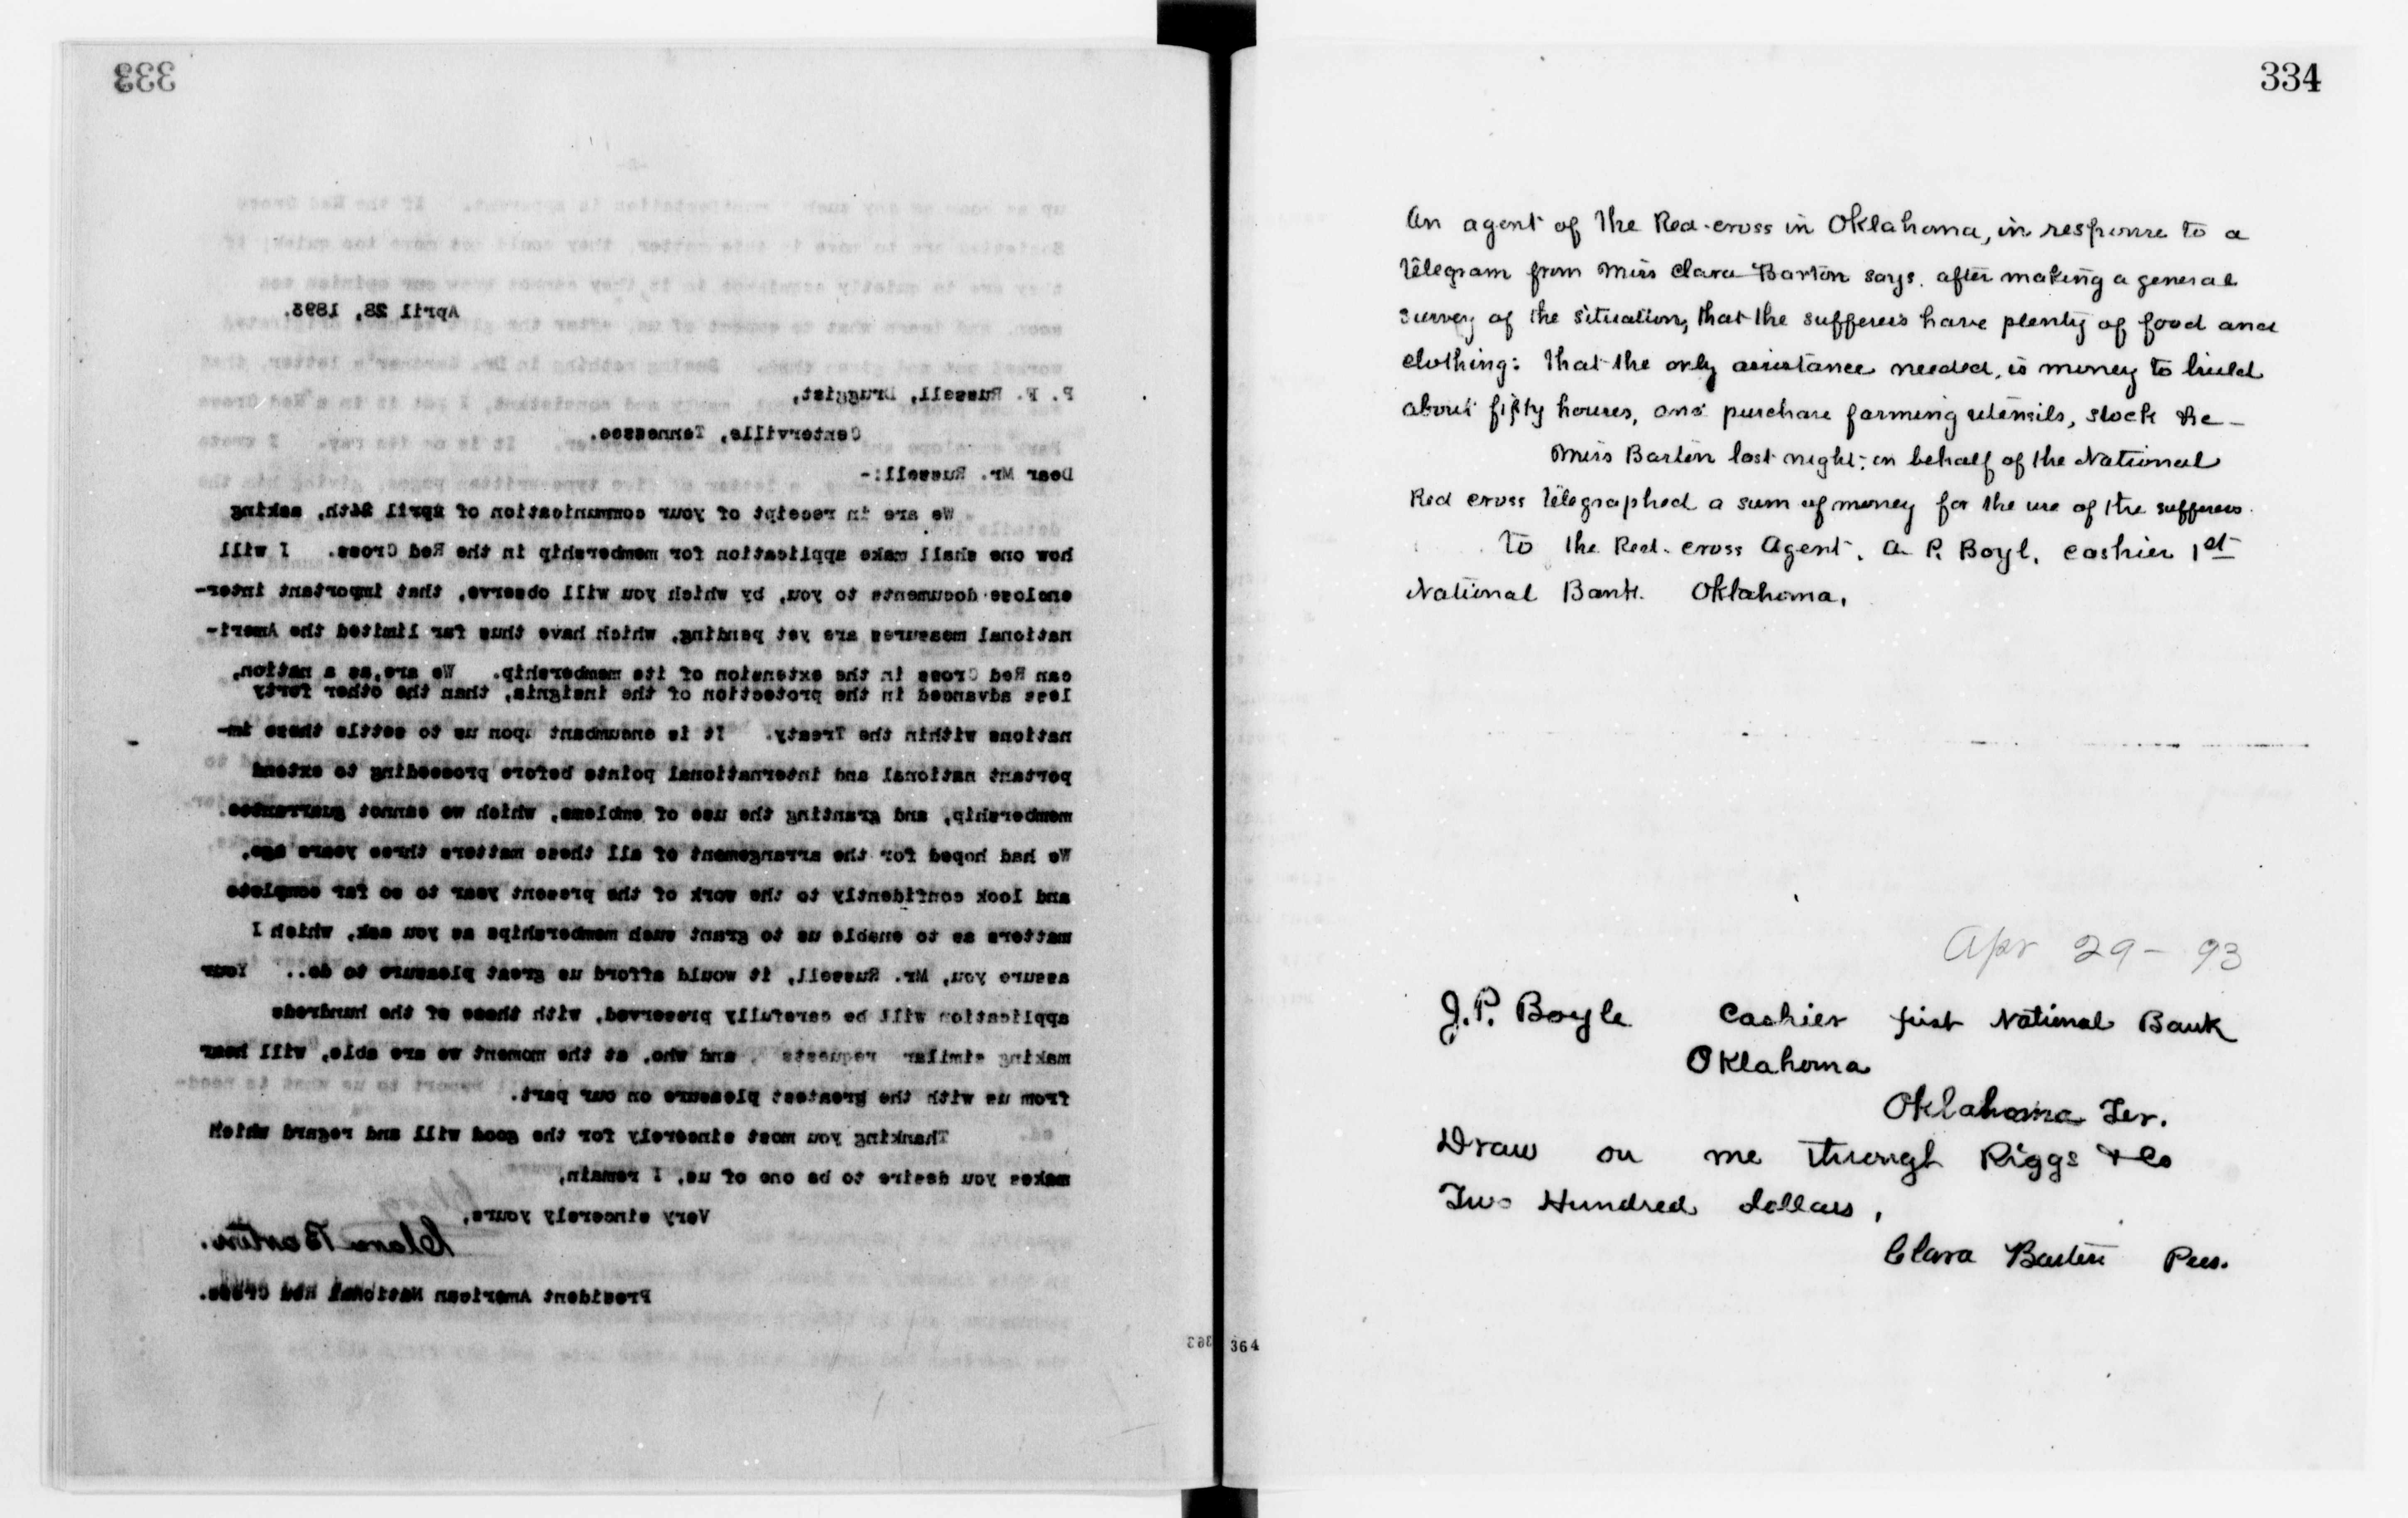 333
April 28, 1893.
P. F. Russell, Druggist,
Centerville, Tennessee.
Dear Mr. Russell:-
We are in receipt of your communication of April 24th, asking
how one shall make application for membership in the Red Cross. I will
enclose documents to you, by which you will observe, that important inter-
national measures are yet pending, which have thus far limited the Ameri-
can Red Cross in the extension of its membership. We are, as a nation,
less advanced in the protection of the insignia, than the other forty
nations within the Treaty. It is encumbant upon us to settle these im-
portant national and international points before proceeding to extend
membership, and granting the use of emblems, which we cannot guarrantee.
We had hoped for the arrangement of all these matters three years ago,
and look confidently to the work of the present year to so far complete
matters as to enable us to grant such memberships as you ask, which I
assure you, Mr. Russell, it would afford us great pleasure to do.. Your
application will be carefully preserved, with those of the hundreds
making similar requests, and who, at the moment we are able, will hear
from us with the greatest pleasure on our part.
Thanking you most sincerely for the good will and regard which
makes you desire to be one of us, I remain,
Very sincerely yours,
Clara Barton.
President American National Red Cross.
363
334
An agent of the Red-cross in Oklahoma, in response to a
telegram from Miss Clara Barton says. after making a general
survey of the situation, that the sufferers have plenty of food and
clothing: that the only assistance needed, is money to build
about fifty houses, and purchase farming utensils, stock &c-
Miss Barton last night, on behalf of the National
Red cross telegraphed a sum of money for the use of the sufferers.
to the Red. cross Agent. A P. Boyl. cashier 1st
National Bank. Oklahoma.
Apr 29 - 93
J. P. Boyle Cashier first National Bank
Oklahoma
Oklahoma Ter.
Draw on me through Riggs & Co
Two Hundred dollars,
Clara Barton Pres.
364